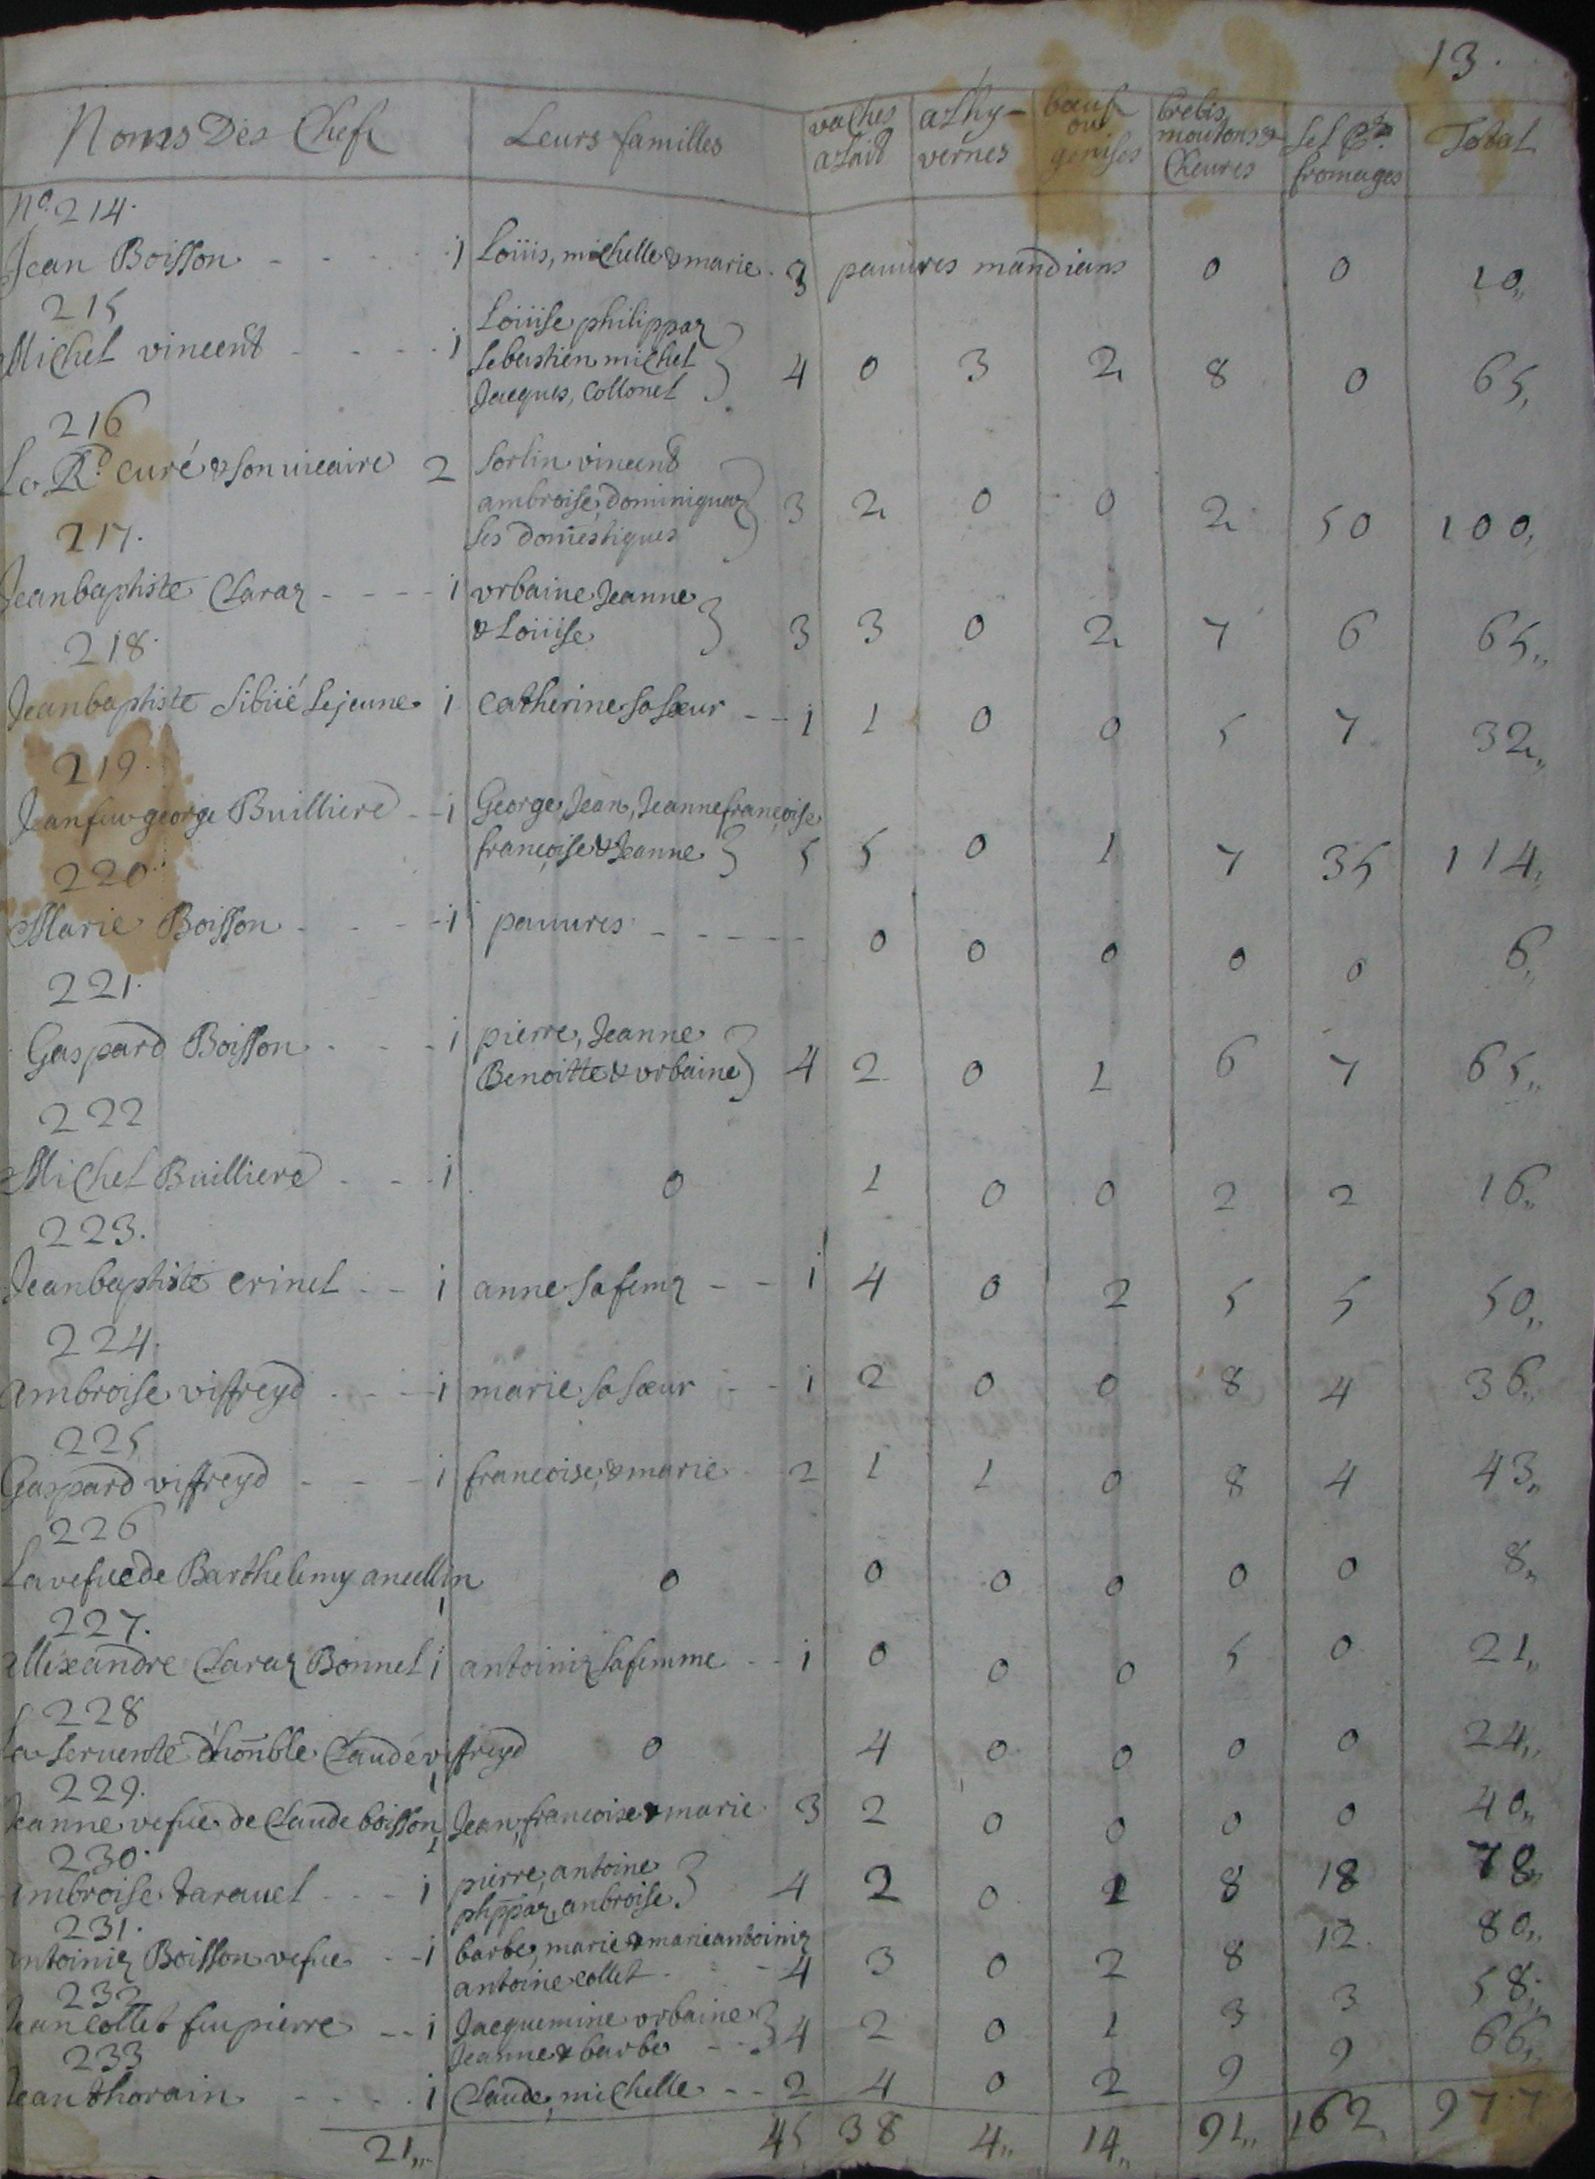 13.
Noms Des Chefs Leurs familles vaches a lait a Lhy-vernes bœufs ou genises brebis moutons & Cheures sel Pr. fromages Total
No. 214.
Jean Boisson - - - - 1 Loüis, michelle & marie - 3 pauures mandians 0 0 10,,
215
Michel vincent - - - - 1 Loüise philippaz
sebastien michel
Jacques, Collonel } 4 0 3 2 8 0 65,
216
Le Rd. curé & son uicaire 2 sorlin vincent
ambroise, dominiquaz
ses doméstiques } 3 2 0 0 2 50 100,
217.
Jeanbaptiste Claraz - - - - 1 vrbaine Jeanne
& Loüise } 3 3 0 2 7 6 65,,
218.
Jeanbaptiste sibüé Lejeune 1 Catherine sa sœur - - 1 1 0 0 5 7 32,,
219.
Jean feu george Buillierd - - 1 George, Jean, Jeannefrançoise
françoise & Jeanne } 5 5 0 1 7 35 114,
220.
Marie Boisson - - - - 1 pauures - - - - - 0 0 0 0 0 6,
221.
Gaspard Boisson - - - 1 pierre, Jeanne
Benoitte & vrbaine } 4 2 0 1 6 7 65,,
222
Michel Buillierd - - - 1 0 1 0 0 2 2 16,,
223.
Jeanbaptiste crinel - - 1 anne sa femz - - 1 4 0 2 5 5 50,,
224.
ambroise viffreyd - - - 1 marie sa sœur - - 1 2 0 0 8 4 36,,
225
Gaspard viffreyd - - - 1 francoise, & marie - 2 1 1 0 8 4 43,,
226
La vefue de Barthelemy ancellin 1 0 0 0 0 0 0 8,,
227.
allexandre Claraz Bonnel 1 antoiniz sa femme - - 1 0 0 0 5 0 21,,
228
La seruente d'honble Claude viffreyd 1 0 4 0 0 0 0 24,,
229.
Jeanne vefue de Claude boisson 1 Jean, francoise & marie 3 2 0 0 0 0 40,,
230.
ambroise taravel - - - 1 pierre, antoine
phppaz, anbroise } 4 2 0 1 8 18 78,,
231.
antoiniz Boisson vefue - - 1 barbe, marie & marieantoiniz
antoine collet - - 4 3 0 2 8 12 80,,
232
Jean collet feu pierre - - 1 Jacquemine vrbaine
Jeanne & barbe - - } 4 2 0 1 3 3 58,,
233
Jean thorain - - - - 1 Claude, michelle - - 2 4 0 2 9 9 66,,
21,, 45 38 4,, 14,, 91,, 162, 977.